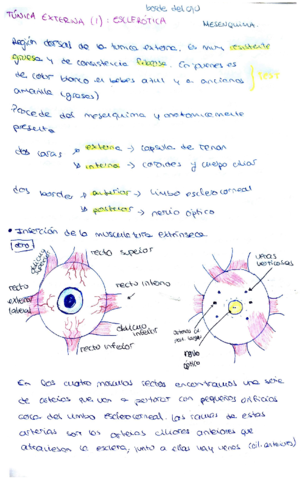 borde del ojo
TÚNICA EXTERNA (1): ESCLERÓTICA
Mesenquima.
Región dorsal de la túnica externa. Es muy resistente
gruesa y de consistencia fibrosa. En jóvenes es
de color blanco, en bebes azul y en ancianos
amarilla (grasas)
TEST
Procede del mesenquima y anatomicamente
presenta
dos caras externa → capsula de tenon
interna → coroides y cuerpo ciliar
dos bordes anterior → Limbo esclerocorneal
posterior → nervio óptico
• Inserción de la musculatura extrínseca
otro
recto superior
oblicuo superior
recto interno
recto externo lateral
oblicuo inferior
recto inferior
venas vorticosas
arterias cil. post. largas
nervio óptico
En los cuatro músculos rectos encontramos una serie
de arterias que van a perforar con pequeños orificios
cerca del limbo esclerocorneal. Las ramas de estas
arterias son las arterias ciliares anteriores que
atraviesan la esclera, junto a ellas hay venas (cil. anteriores)